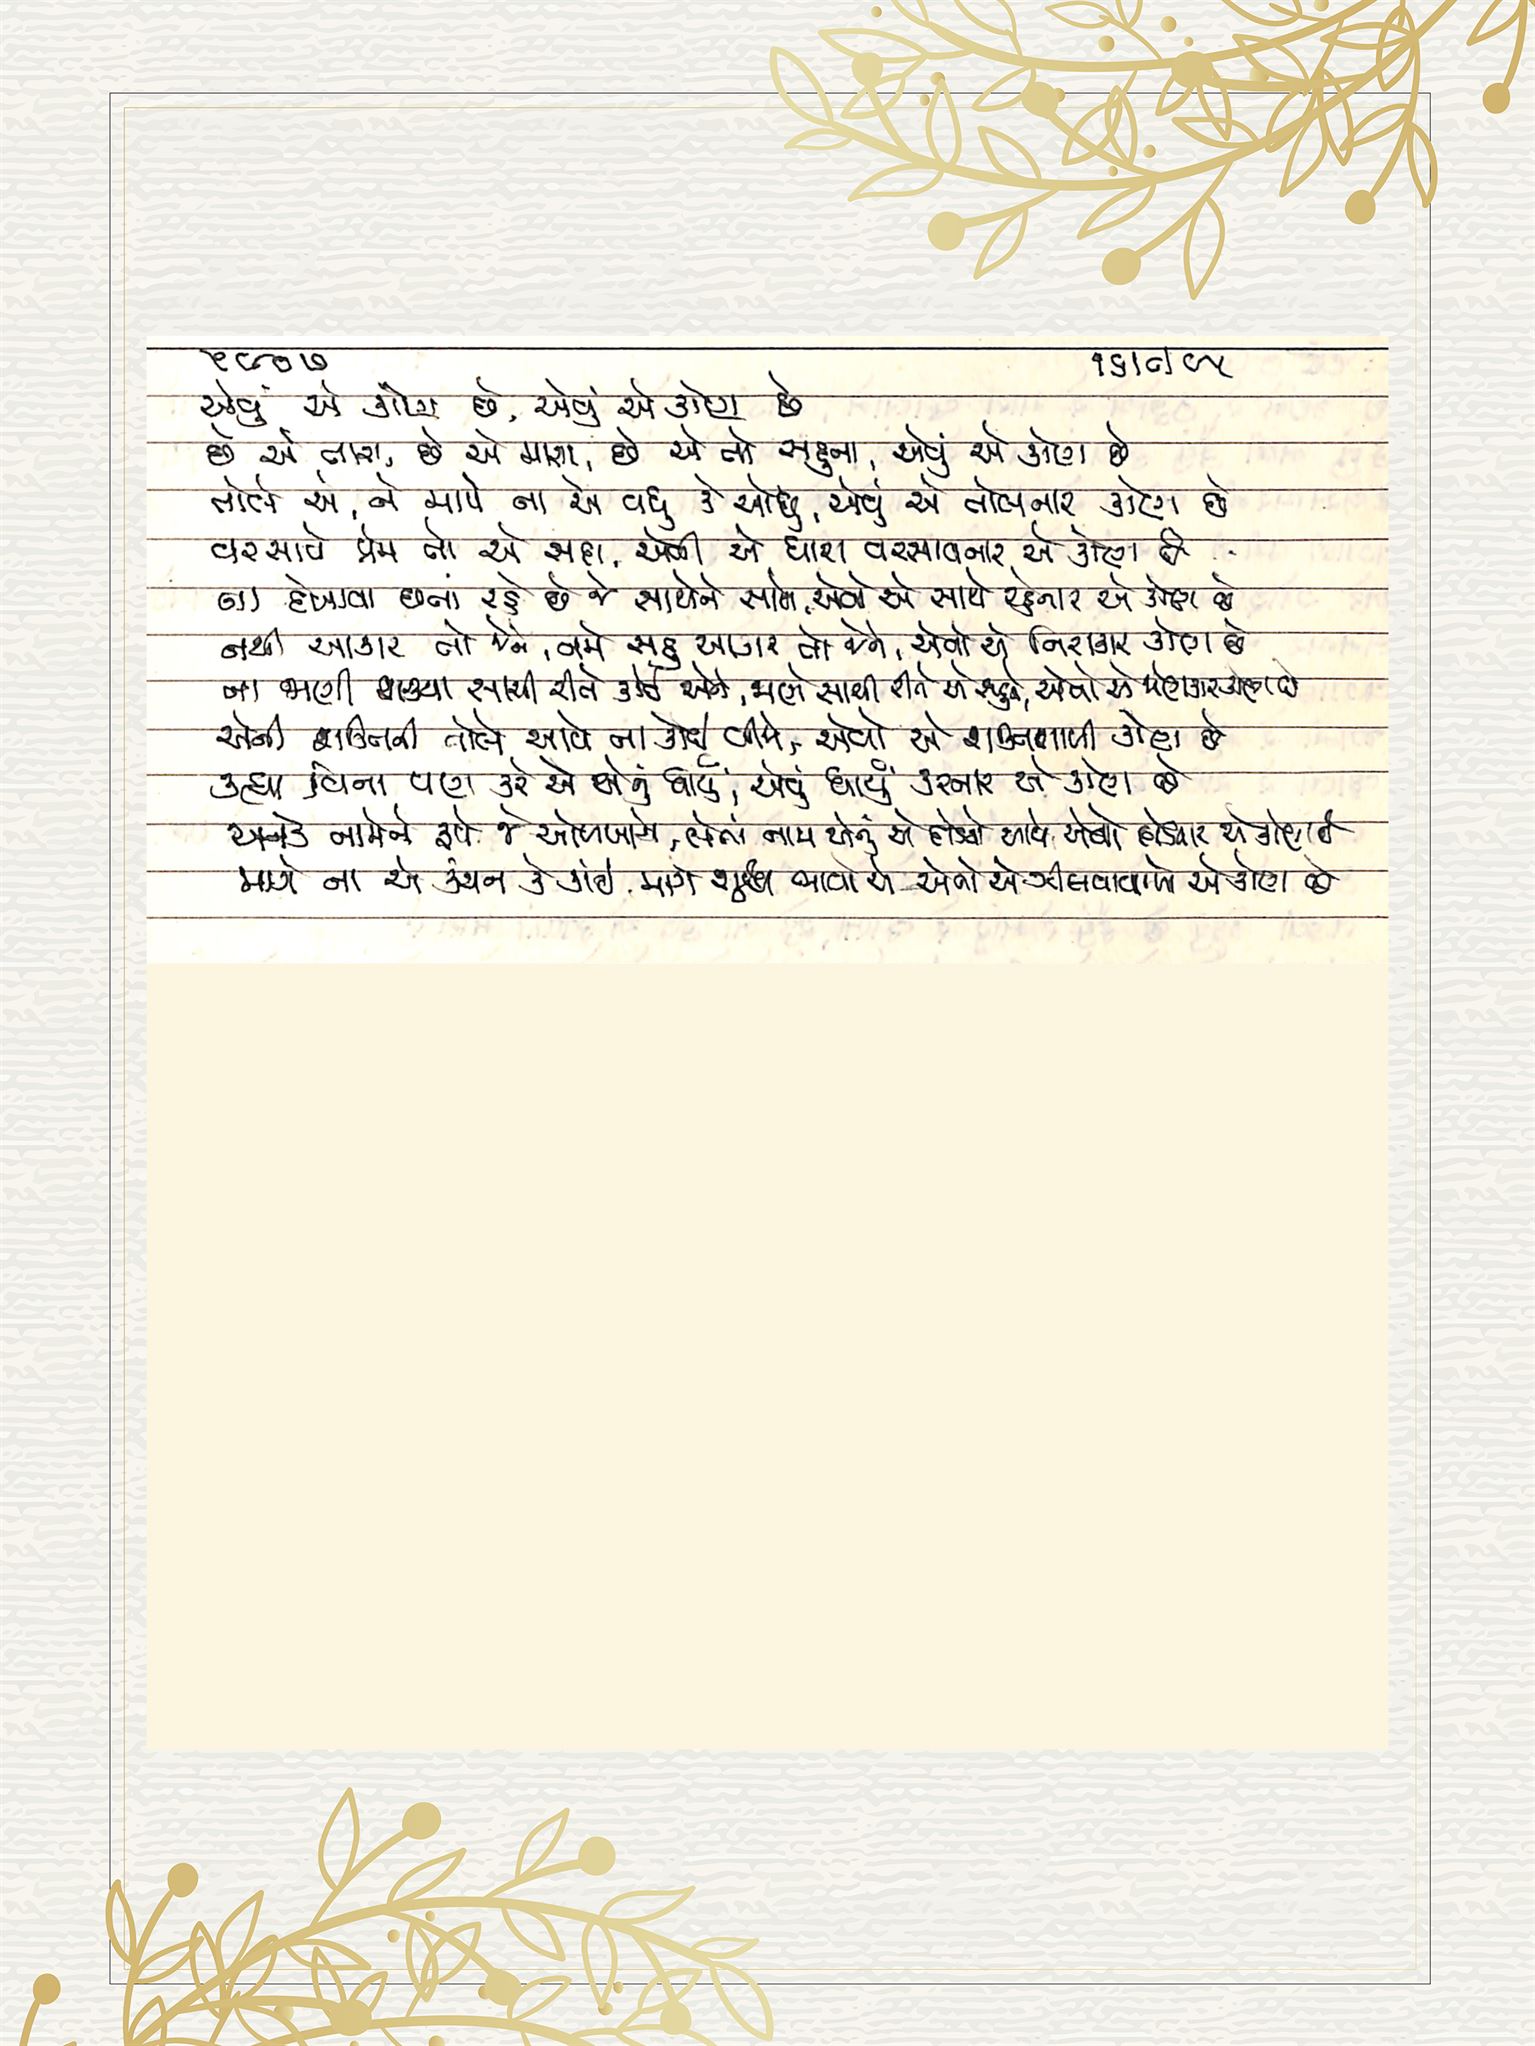 ૬૦૭ ૧૬।૧।૯૫
એવું એ કોણ છે, એવું એ કોણ છે
છે એ તારા, છે એ મારા, છે એ તો સહુના, એવું એ કોણ છે
તોલે એ, ને માપે ના એ વધુ કે ઓછું, એવું એ તોલનાર કોણ છે
વરસાવે પ્રેમ તો એ સદા, એવી એ ધારા વરસાવનાર એ કોણ છે
ના દેખાવા છતાં રહે છે જે સાથેને સાથે, એવો એ સાથે રહેનાર એ કોણ છે
નથી આકાર તો જેને, નમે સહુ આકાર તો જેને, એવો એ નિરાકાર કોણ છે
ના જાણી શક્યા સાચી રીતે કોઈ એને, જાણે સાચી રીતે એ સહુને, એવો એ જાણકાર કોણ છે
એની શક્તિની તોલે આવે ના કોઈ બીજે, એવો એ શક્તિશાળી કોણ છે
કહ્યા વિના પણ કરે એ એનું ધાર્યું, એવું ધાર્યું કરનાર એ કોણ છે
અનેક નામેને રૂપે જે ઓળખાયે, લેતાં નામ એનું એ દોડયો આવે, એવો દોડનાર એ કોણ છે
માગે ના એ કંચન કે કાંઈ, માગે શુદ્ધ ભાવો એ એવો એ ઝીલવાવાળો એ કોણ છે